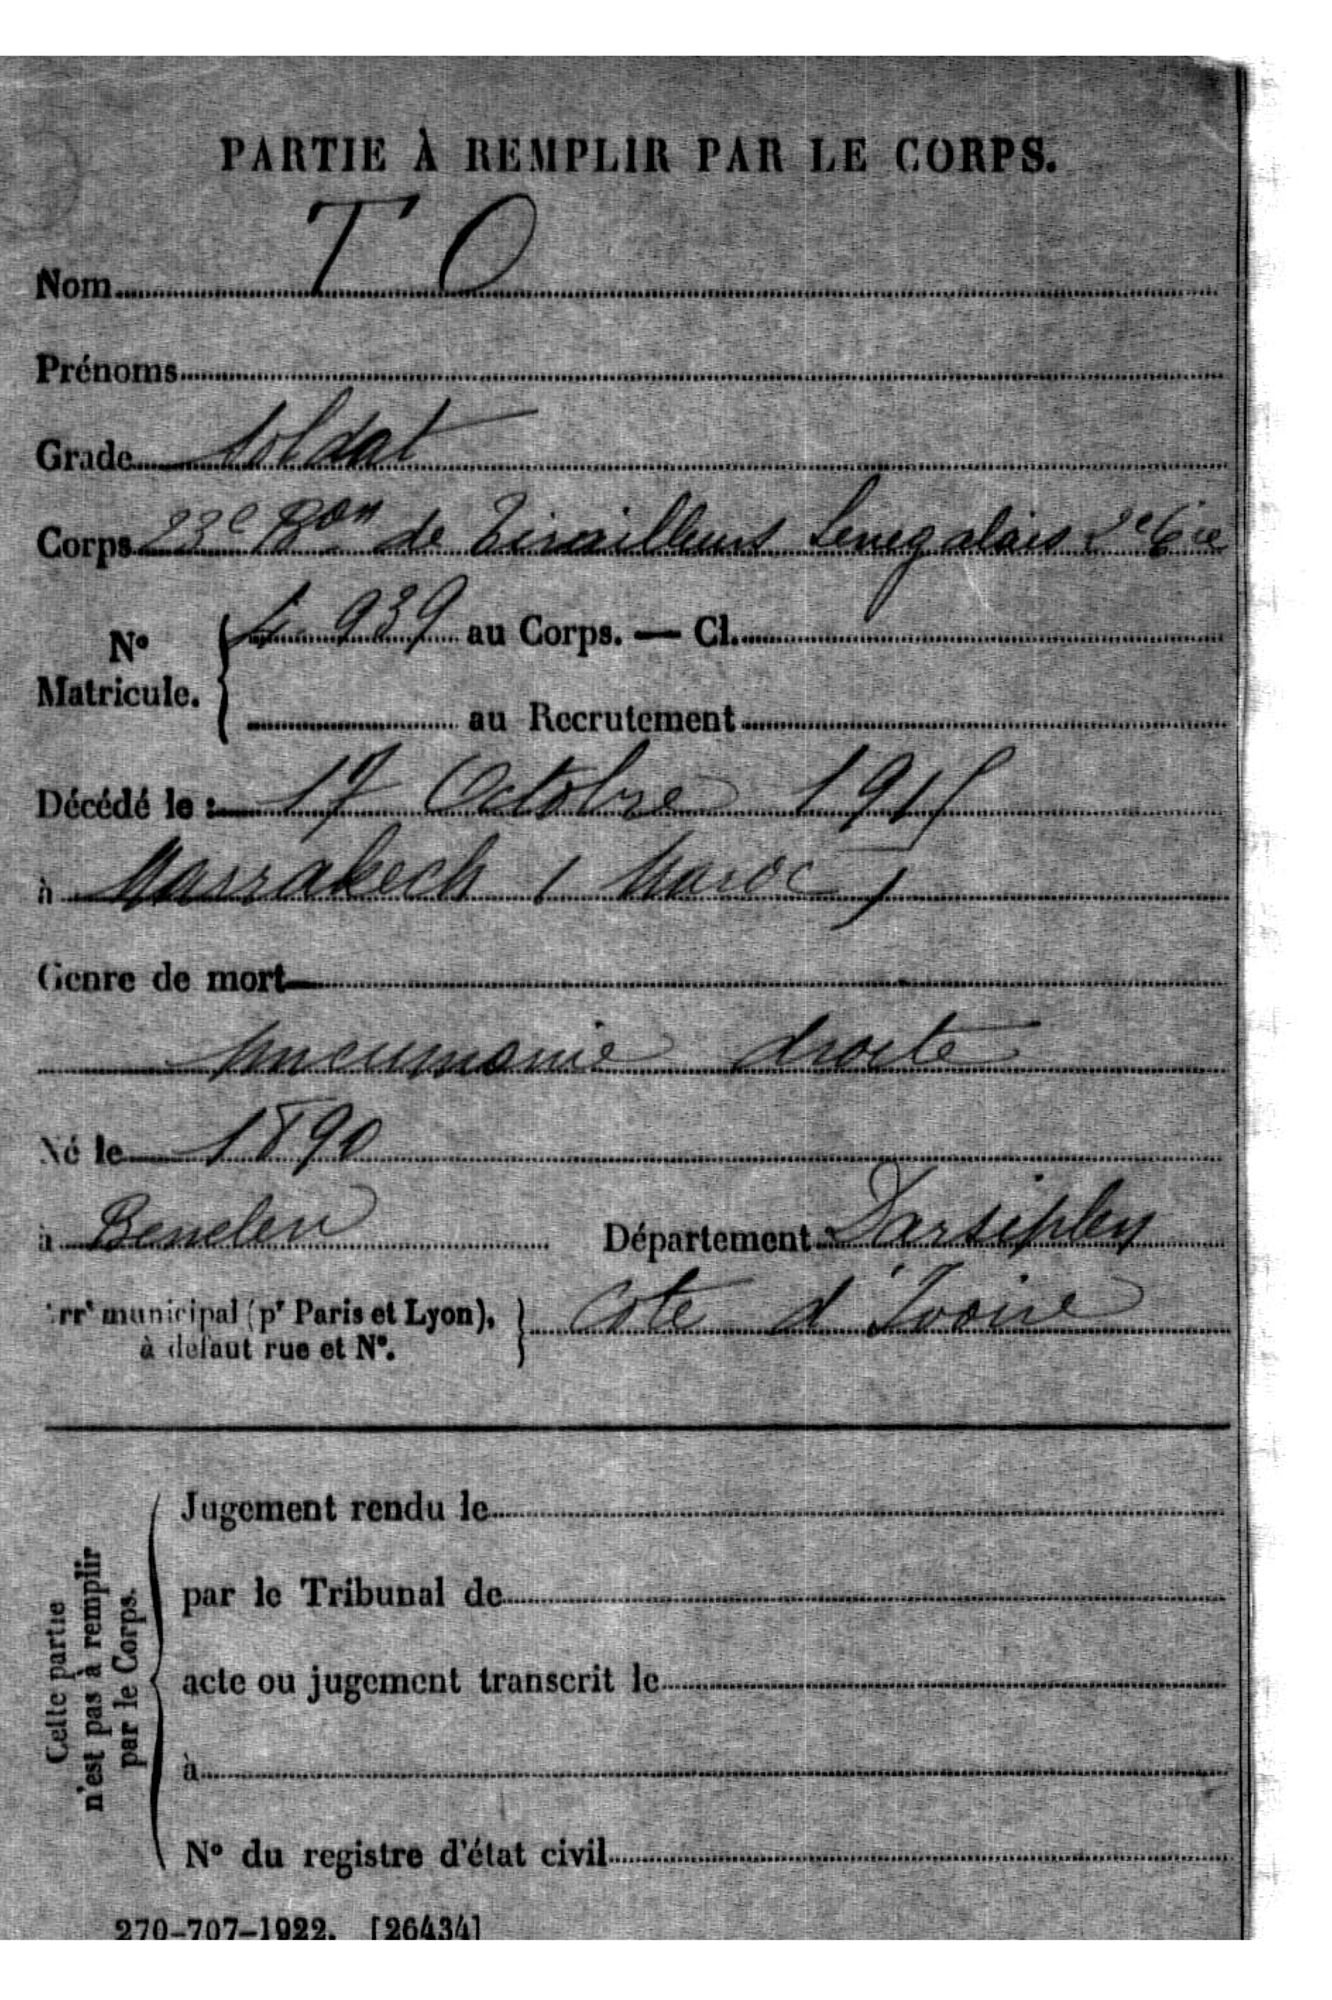 PARTIE À REMPLIR PAR LE CORPS.
Nom T O
Prénoms
Grade Soldat
Corps 23e Bon de Tirailleurs Senegalais 2e Cie
No Matricule. { 4 939 au Corps. — Cl.
au Recrutement
Décédé le : 17 Octobre 1915
à Marrakech ( Maroc )
Genre de mort
pneumonie droite
Né le 1890
à Benelen Département Darsipley
rrt municipal (pr Paris et Lyon), à défaut rue et No. } Cote d'Ivoire
Cette partie n'est pas à remplir par le Corps.
Jugement rendu le
par le Tribunal de
acte ou jugement transcrit le
à
No du registre d'état civil
270-707-1922. [26434]